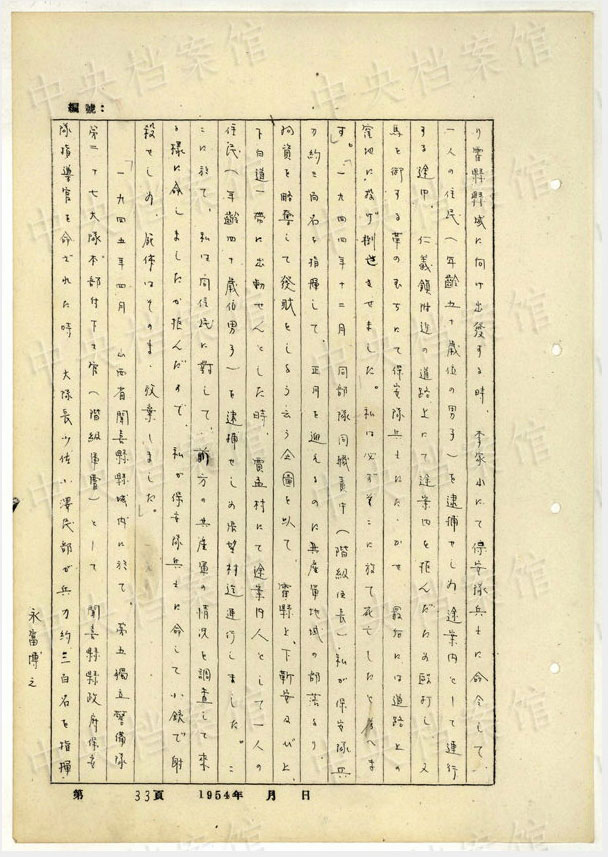 編號：
り霍縣縣城に向け出発する時、李家山にて保安隊兵士に命令して、
一人の住民（年齢五十歳位の男子）を逮捕せしめ途案内として連行
する途中、仁義鎮附近の道路上にて途案内を拒んだため殴打し、又
馬を御する革のむちにて保安隊兵士にたゝかせ、最后には道路上の
窪地に投げ倒させました。私は必ずそこに於て死亡したと考へま
す。「一九四四年十二月、同部隊同職責中（階級伍長）私が保安隊兵
力約三百名を指揮して、正月を迎えるのに共産軍地域の部落より
物資を略奪して発財をしようと云う企圖を以て、霍縣上、下靳安及び上
下白道一帯に出動せんとした時、賈孟村にて途案内人として一人の
住民（年齢四十歳位男子）を逮捕せしめ 望村迄連行しました。こ
こに於て、私は同住民に對して、前方の共産軍の情況を調査して来
る様に命しましたが拒んだので、私が保安隊兵士に命して小銃で射
殺せしめ、屍体はそのまゝ放棄しました。」
「一九四五年四月、山西省聞喜縣縣城内に於て、第五獨立警備隊
第二十七大隊本部付下士官（階級軍曹）として、聞喜縣縣政府保安
隊指導官を命ぜれた時、大隊長少佐小澤 部が兵力約三百名を指揮
永富博之
第 33頁 1954年 月 日
中央档案馆